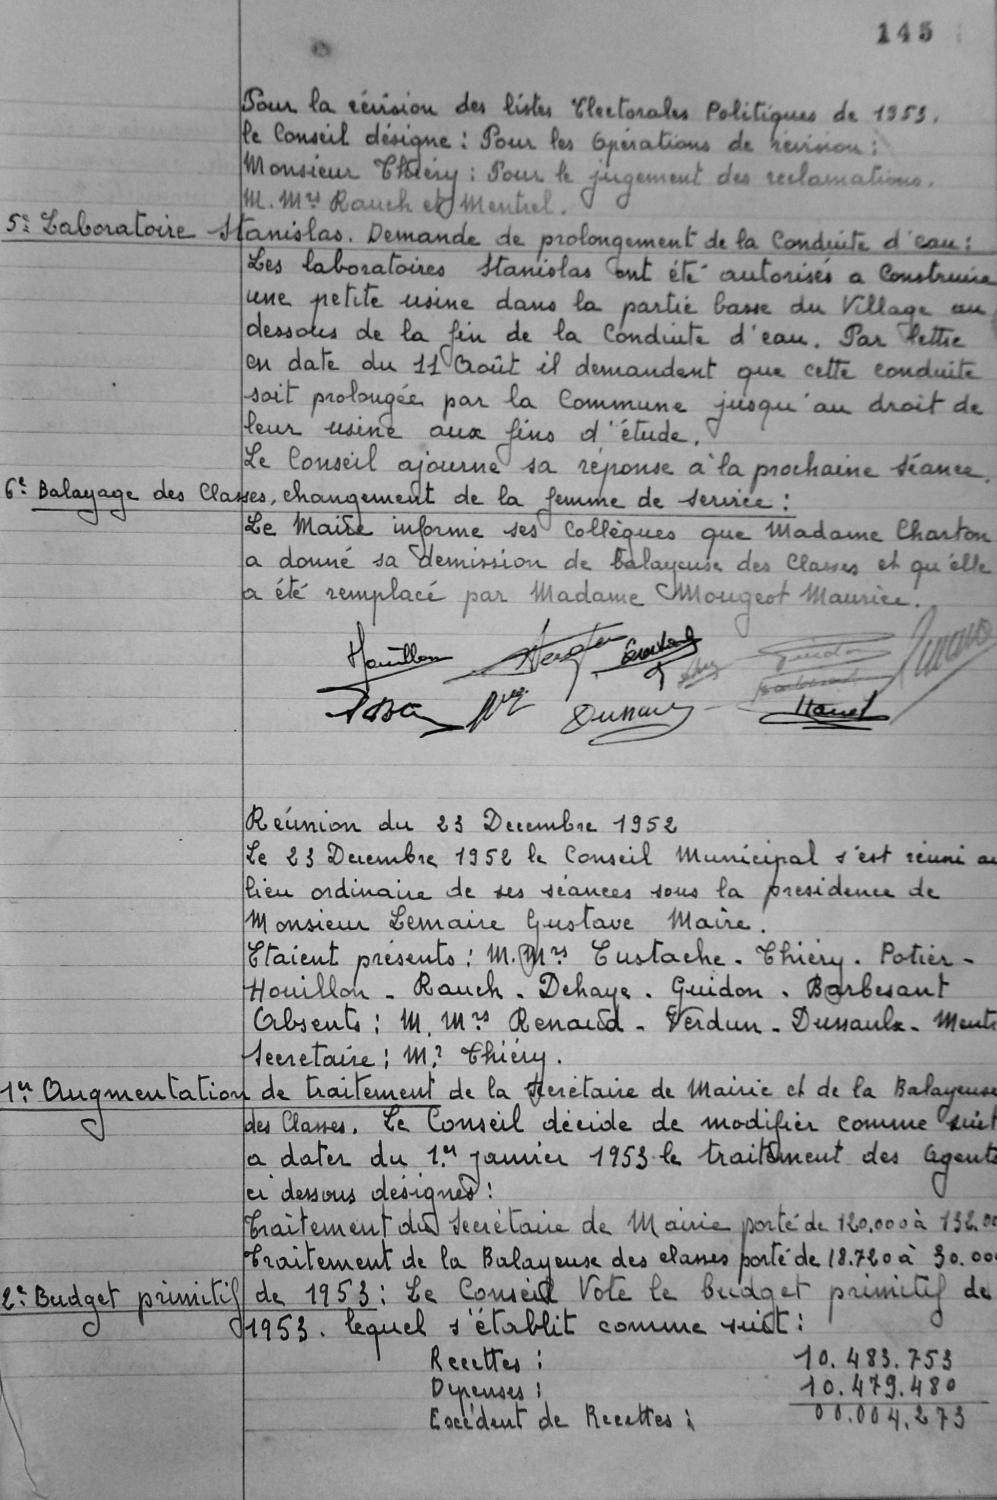 145
Pour la révision des listes Electorales Politiques de 1953.
le Conseil désigne : Pour les Opérations de révision :
Monsieur Thiéry : Pour le jugement des réclamations.
M. Mrs Rauch et Mentrel.
5e Laboratoire Stanislas. Demande de prolongement de la Conduite d'eau :
Les laboratoires Stanislas ont été autorisés a Construire
une petite usine dans la partie basse du Village au
dessous de la fin de la Conduite d'eau. Par lettre
en date du 11 Août il demandent que cette conduite
soit prolongée par la Commune jusqu'au droit de
leur usine aux fins d'étude.
Le Conseil ajourne sa réponse à la prochaine séance.
6e Balayage des Classes, changement de la femme de service :
Le Maire informe ses Collègues que Madame Charton
a donné sa démission de balayeuse des Classes et qu'elle
a été remplacé par Madame Mougeot Maurice.
Houillon
Guidon
Barbesant
Dussaulx
Réunion du 23 Decembre 1952
Le 23 Decembre 1952 le Conseil Municipal s'est réuni au
lieu ordinaire de ses séances sous la présidence de
Monsieur Lemaire Gustave Maire.
Etaient présents : M. Mrs Eustache - Thiéry. Potier -
Houillon - Rauch - Dehaye. Guidon - Barbesant
Absents : M. Mrs Renaud - Verdun - Dussaulx - Ment
Secretaire : Mr Thiéry.
1er Augmentation de traitement de la Secrétaire de Mairie et de la Balayeuse
des Classes. Le Conseil décide de modifier comme suit
a dater du 1er janvier 1953 le traitement des Agents
ci dessous désignés :
Traitement du Secrétaire de Mairie porté de 120.000 à 132.00
Traitement de la Balayeuse des classes porté de 18.720 à 30.000
2e Budget primitif de 1953 : Le Conseil Vote le budget primitif de
1953. lequel s'établit comme suit :
Recettes : 10.483.753
Dépenses : 10.479.480
Excédent de Recettes : 00.004.273